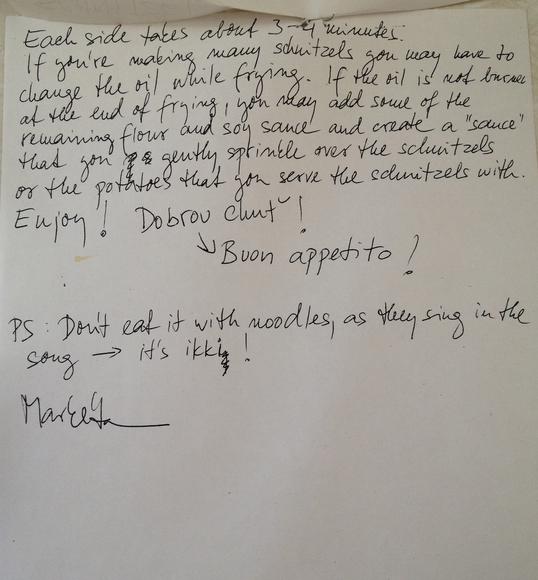 Each side takes about 3-4 minutes.
If you're making many schnitzels you may have to
change the oil while frying. If the oil is not burned
at the end of frying, you may add some of the
remaining flour and soy sauce and create a "sauce"
that you gently sprinkle over the schnitzels
or the potatoes that you serve the schnitzels with.
Enjoy! Dobrou chuť!
↳ Buon appetito!
PS: Don't eat it with noodles, as they sing in the
song → it's ikki!
Markéta